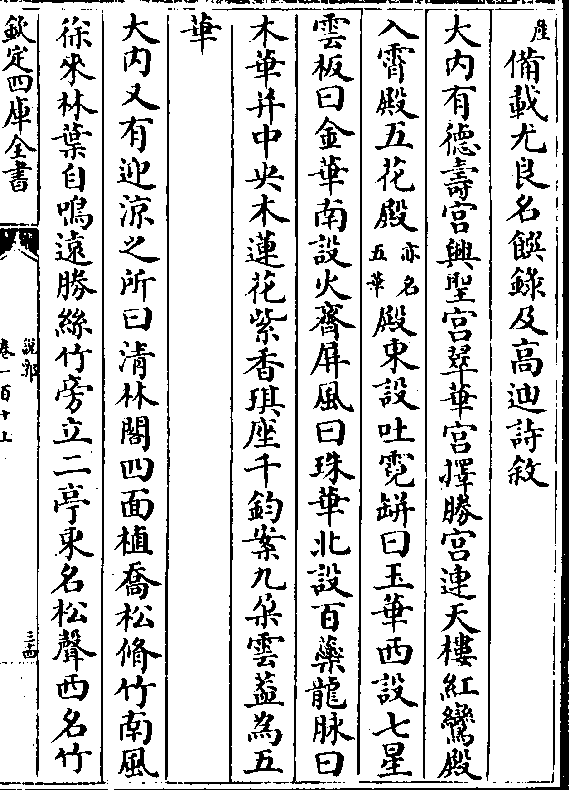 產
備載尤良名饌錄及高迪詩敘
大内有德壽宮興聖宮翠華宮擇勝宮連天樓紅鸞殿
入霄殿五花殿亦名五華殿東設吐霓缾曰玉華西設七星
雲板曰金華南設火齊屏風曰珠華北設百蘂龍脉曰
木華并中央木蓮花紫香琪座千鈞案九朵雲葢為五
華
大内又有迎涼之所曰清林閣四面植喬松脩竹南風
徐來林葉自鳴遠勝絲竹旁立二亭東名松聲西名竹
欽定四庫全書
說郛
卷一百十上
三四